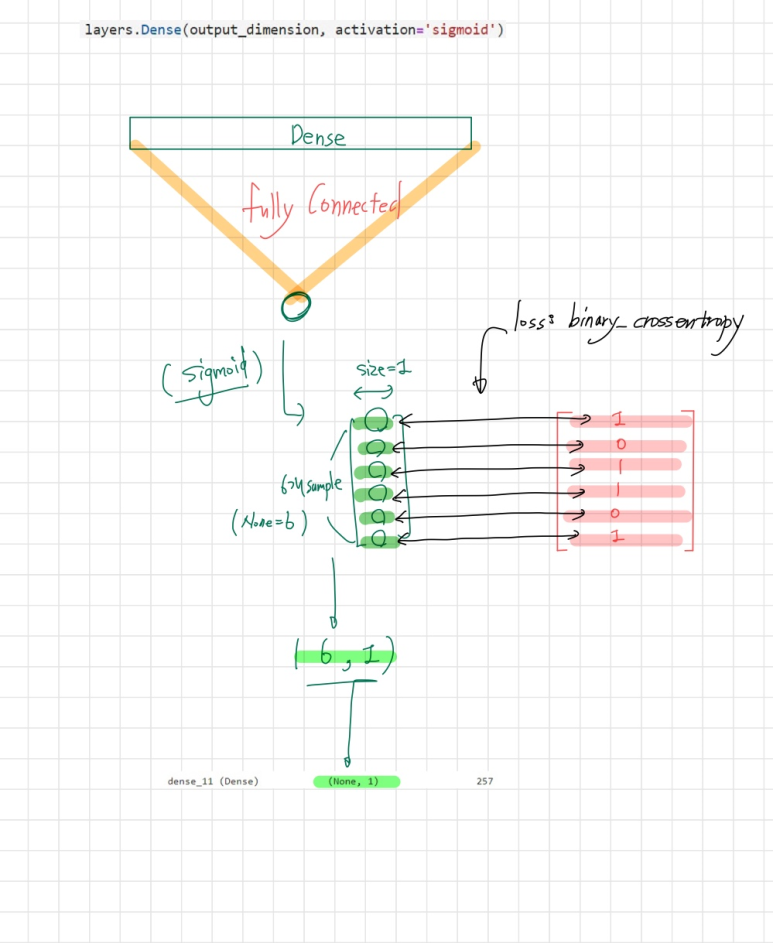 layers.Dense(output_dimension, activation='sigmoid')
Dense
fully Connected
loss: binary_crossentropy
(sigmoid)
size=1
1
0
1
1
0
1
6개 sample
(None=6)
(6, 1)
dense_11 (Dense) (None, 1) 257